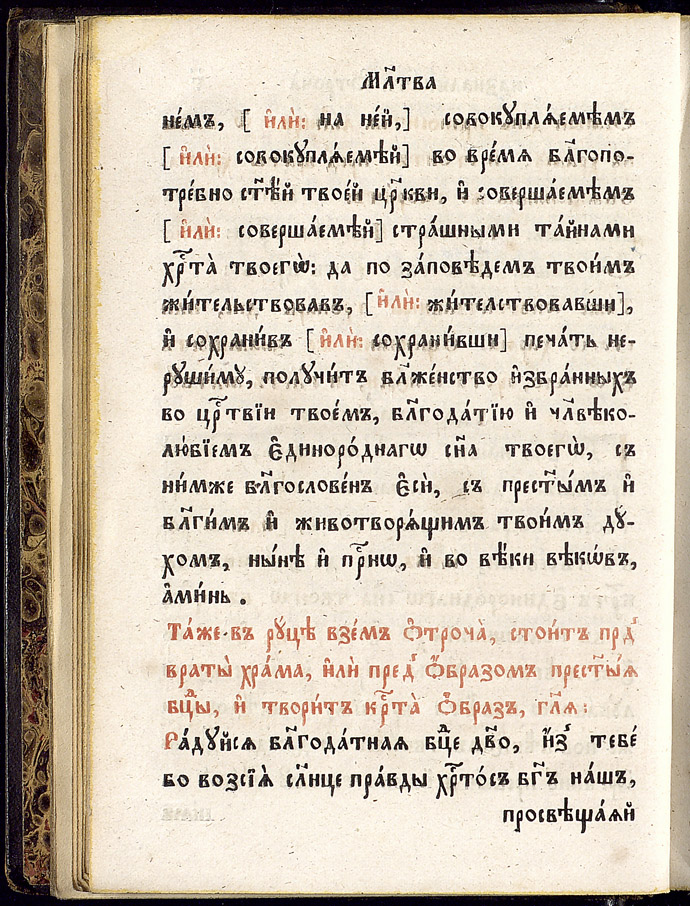 Мл҃тва
не́мъ, [ и҆лѝ: на не́й,] совокꙋплѧ́емѣмъ
[ и҆лѝ: совокꙋплѧ́емѣй] во вре́мѧ бл҃гопо-
тре́бно ст҃ѣ́й твое́й цр҃кви, и҆ соверша́емѣмъ
[ и҆лѝ: соверша́емѣй] стра́шными та́йнами
хрⷭ҇та̀ твоегѡ̀: да по за́повѣдемъ твои̑мъ
жи́тельствовавъ, [и҆лѝ: жи́телствовавши],
и҆ сохрани́въ [и҆лѝ: сохрани́вши] печа́ть не-
рꙋши́мꙋ, полꙋчи́тъ бл҃же́нство и҆збра́нныхъ
во црⷭ҇твїи твое́мъ, бл҃года́тїю и҆ чл҃вѣко-
лю́бїемъ є҆диноро́днагѡ сн҃а твоегѡ̀, съ
ни́мже бл҃гослове́нъ є҆сѝ, съ прест҃ы́мъ и҆
бл҃ги́мъ и҆ животворѧ́щимъ твои́мъ дꙋ́-
хомъ, ны́нѣ и҆ прⷭ҇нѡ, и҆ во вѣ́ки вѣкѡ́въ,
а҆ми́нь .
Та́же въ рꙋ́цѣ взе́мъ ѻ҆троча̀, стои́тъ предⸯ
враты̀ хра́ма, и҆лѝ предⸯ ѻ҆́бразомъ прест҃ы́ѧ
бцⷣы, и҆ твори́тъ крⷭ҇та̀ ѻ҆́бразъ, гл҃ѧ:
Ра́дꙋйсѧ бл҃года́тнаѧ бцⷣе дв҃о, и҆зⸯ тебе́
бо возсїѧ̀ сл҃нце пра́вды хрⷭ҇то́съ бг҃ъ на́шъ,
просвѣща́ѧй